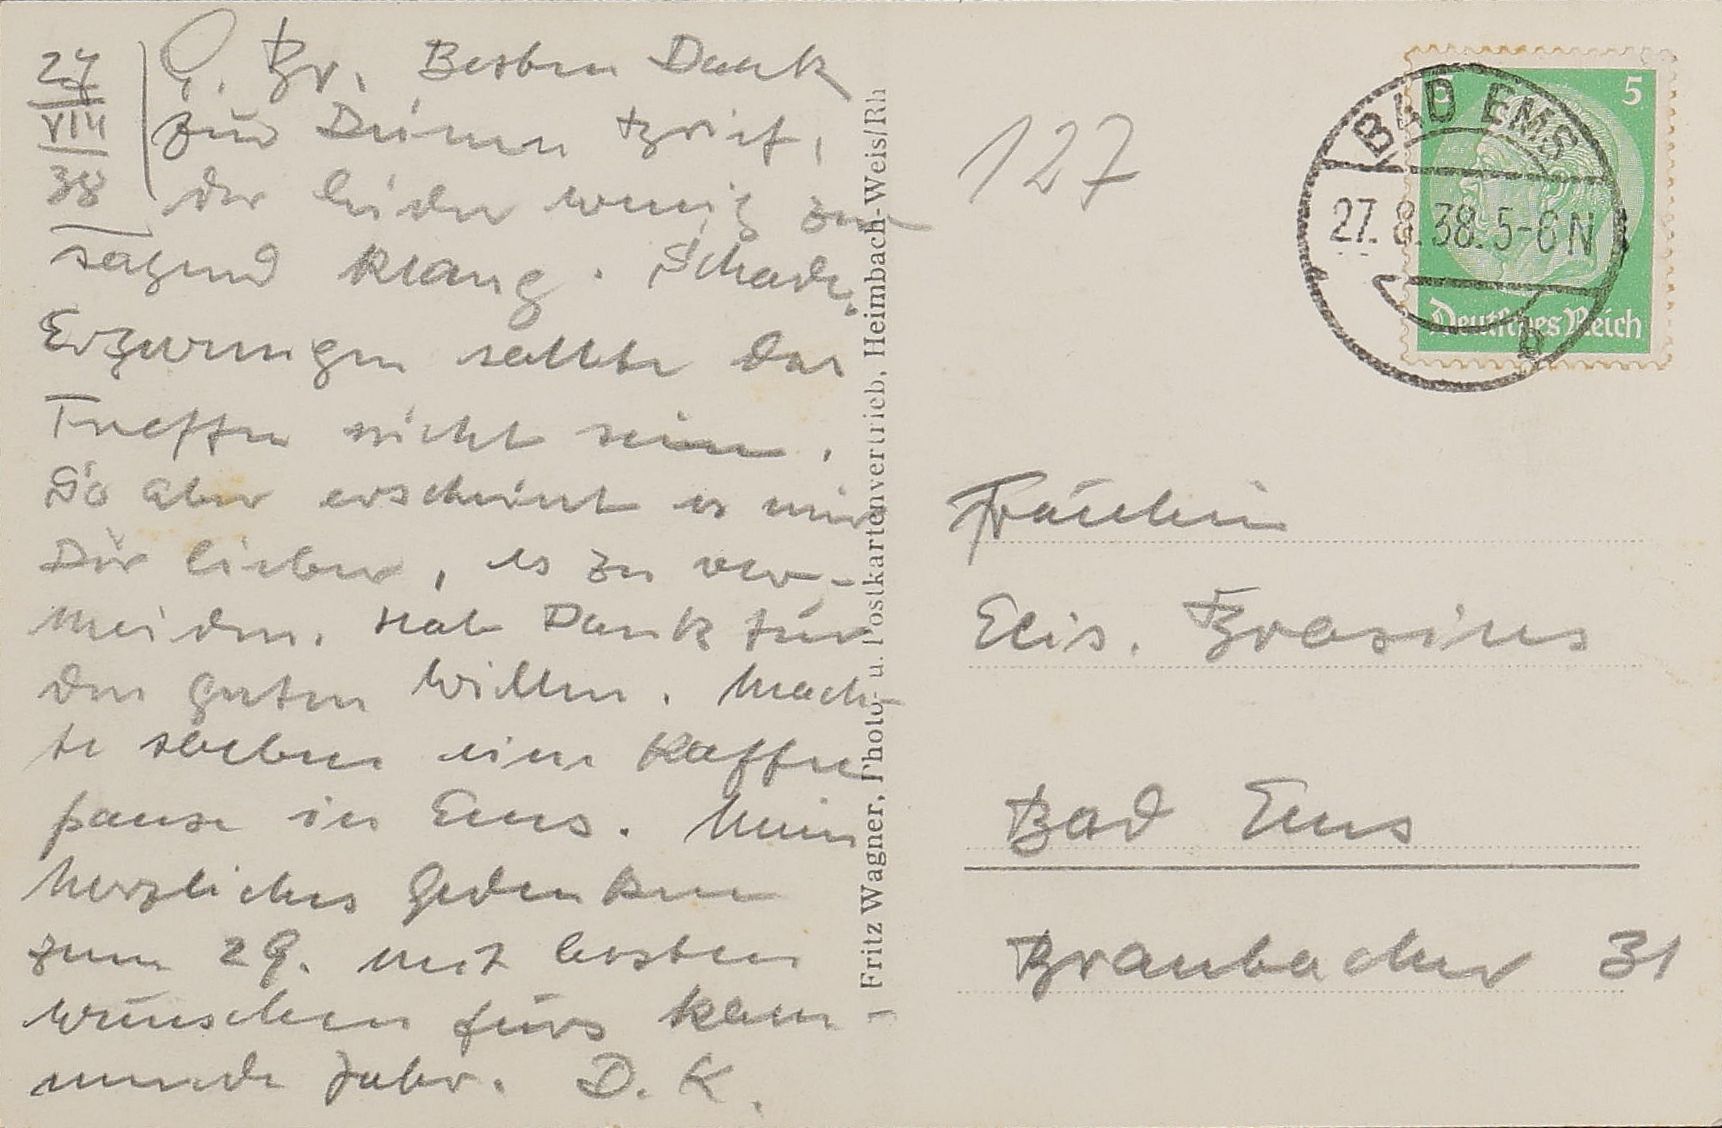 27
VIII
38
L. Br. Besten Dank
für Deinen Brief,
der leider wenig zu-
sagend klang. Schade.
Erzwungen sollte das
Treffen nicht sein.
So aber erscheint es mir
Dir lieber, es zu ver-
meiden. Hab Dank für
den guten Willen. Mach-
te soeben eine Kaffee
pause in Ems. Mein
herzliches Gedenken
zum 29. mit besten
Wünschen fürs kom-
mende Jahr. D. K.
Fritz Wagner, Photo- u. Postkartenvertrieb, Heimbach-Weis/Rh
127
BAD EMS
27.8.38.5-6N
b
5
5
Deutsches Reich
Fräulein
Elis. Brasius
Bad Ems
Braubacher 31